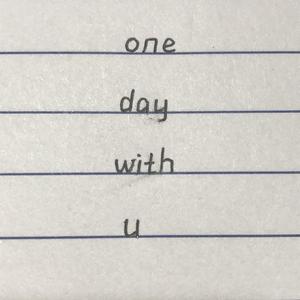 one
day
with
u